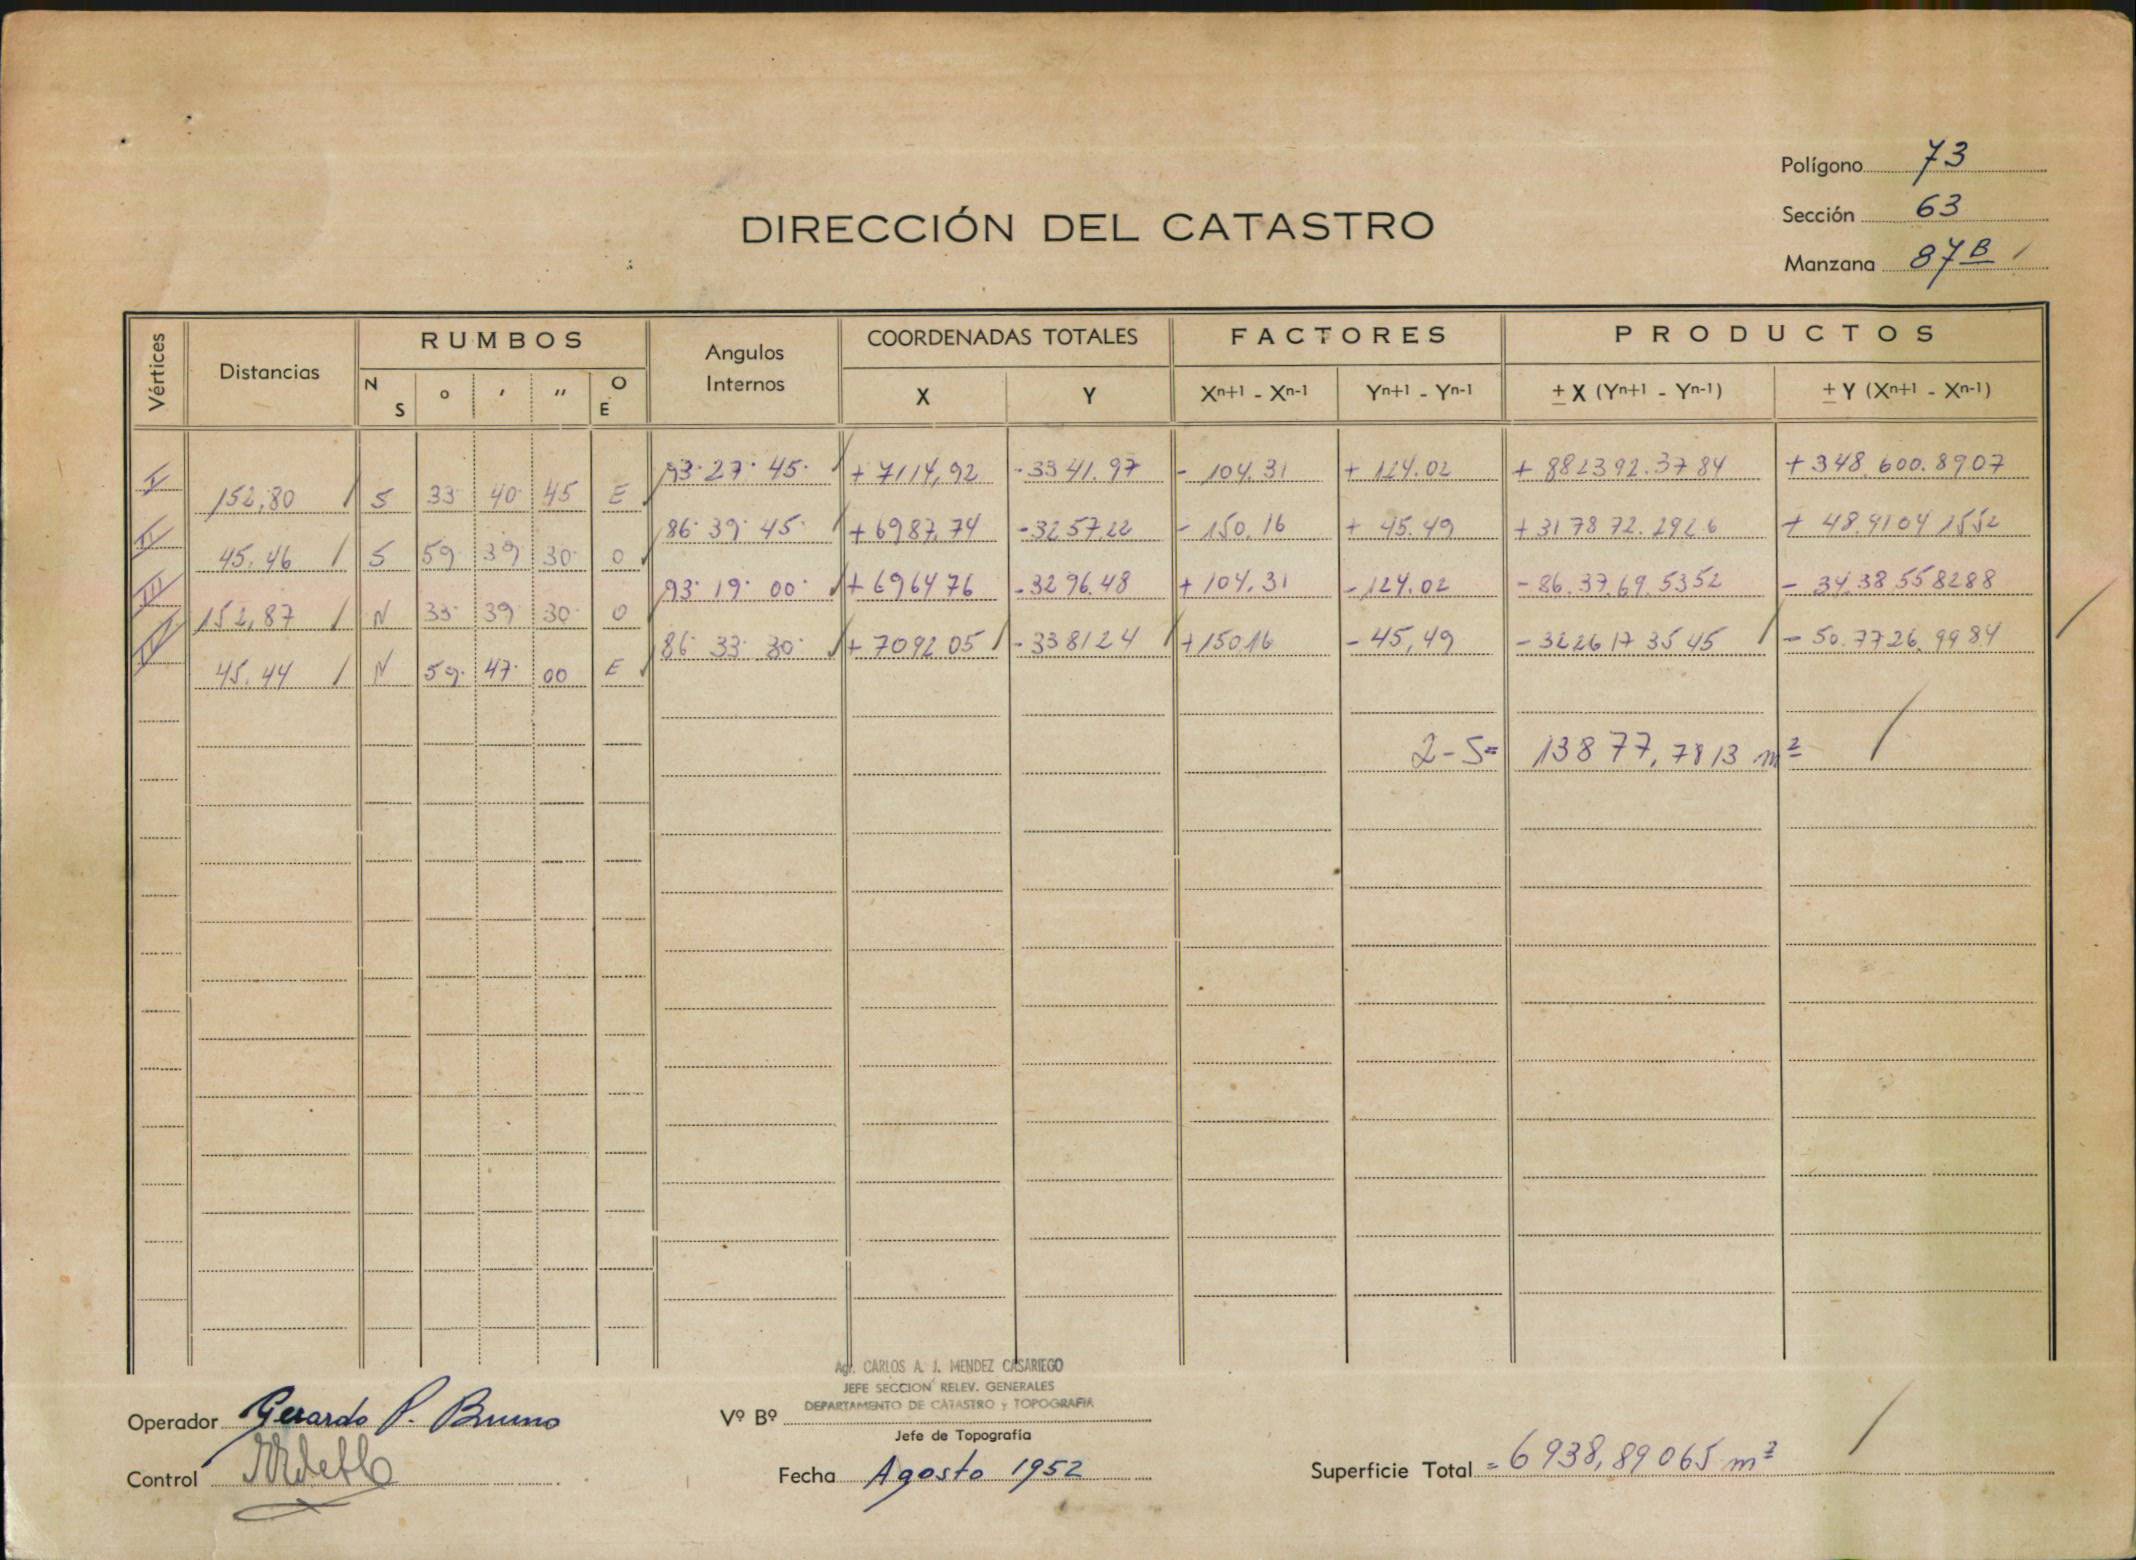 Polígono 73
Sección 63
Manzana 87 B
DIRECCIÓN DEL CATASTRO
Vértices Distancias RUMBOS Angulos Internos COORDENADAS TOTALES FACTORES PRODUCTOS
N S ° ' " O E X Y Xn+1 - Xn-1 Yn+1 - Yn-1 ± X (Yn+1 - Yn-1) ± Y (Xn+1 - Xn-1)
I 93· 27· 45· + 7114,92 - 3341.97 - 104.31 + 124.02 + 882392.3784 + 348.600.8907
152,80 S 33· 40· 45 E
II 86· 39· 45· + 6987,74 - 3257.22 - 150.16 + 45.49 + 317872.2926 + 48.9104 1552
45.46 S 59· 39· 30· O
III 93· 19· 00· + 6964 76 - 3296.48 + 104.31 - 124.02 - 86.37.69.5352 - 34.38558288
152,87 N 33· 39· 30· O
IV 86· 33· 30· + 7092 05 - 3381 24 + 150 16 - 45,49 - 322617 3545 - 50.7726.9984
45.44 N 59· 47· 00 E
2-S= 13877,7813 m²
Agr. CARLOS A. J. MENDEZ CASARIEGO
JEFE SECCION RELEV. GENERALES
DEPARTAMENTO DE CATASTRO y TOPOGRAFIA
Operador Gerardo P. Bruno Vº Bº
Jefe de Topografía
Control Fecha Agosto 1952 Superficie Total = 6938,89065 m²